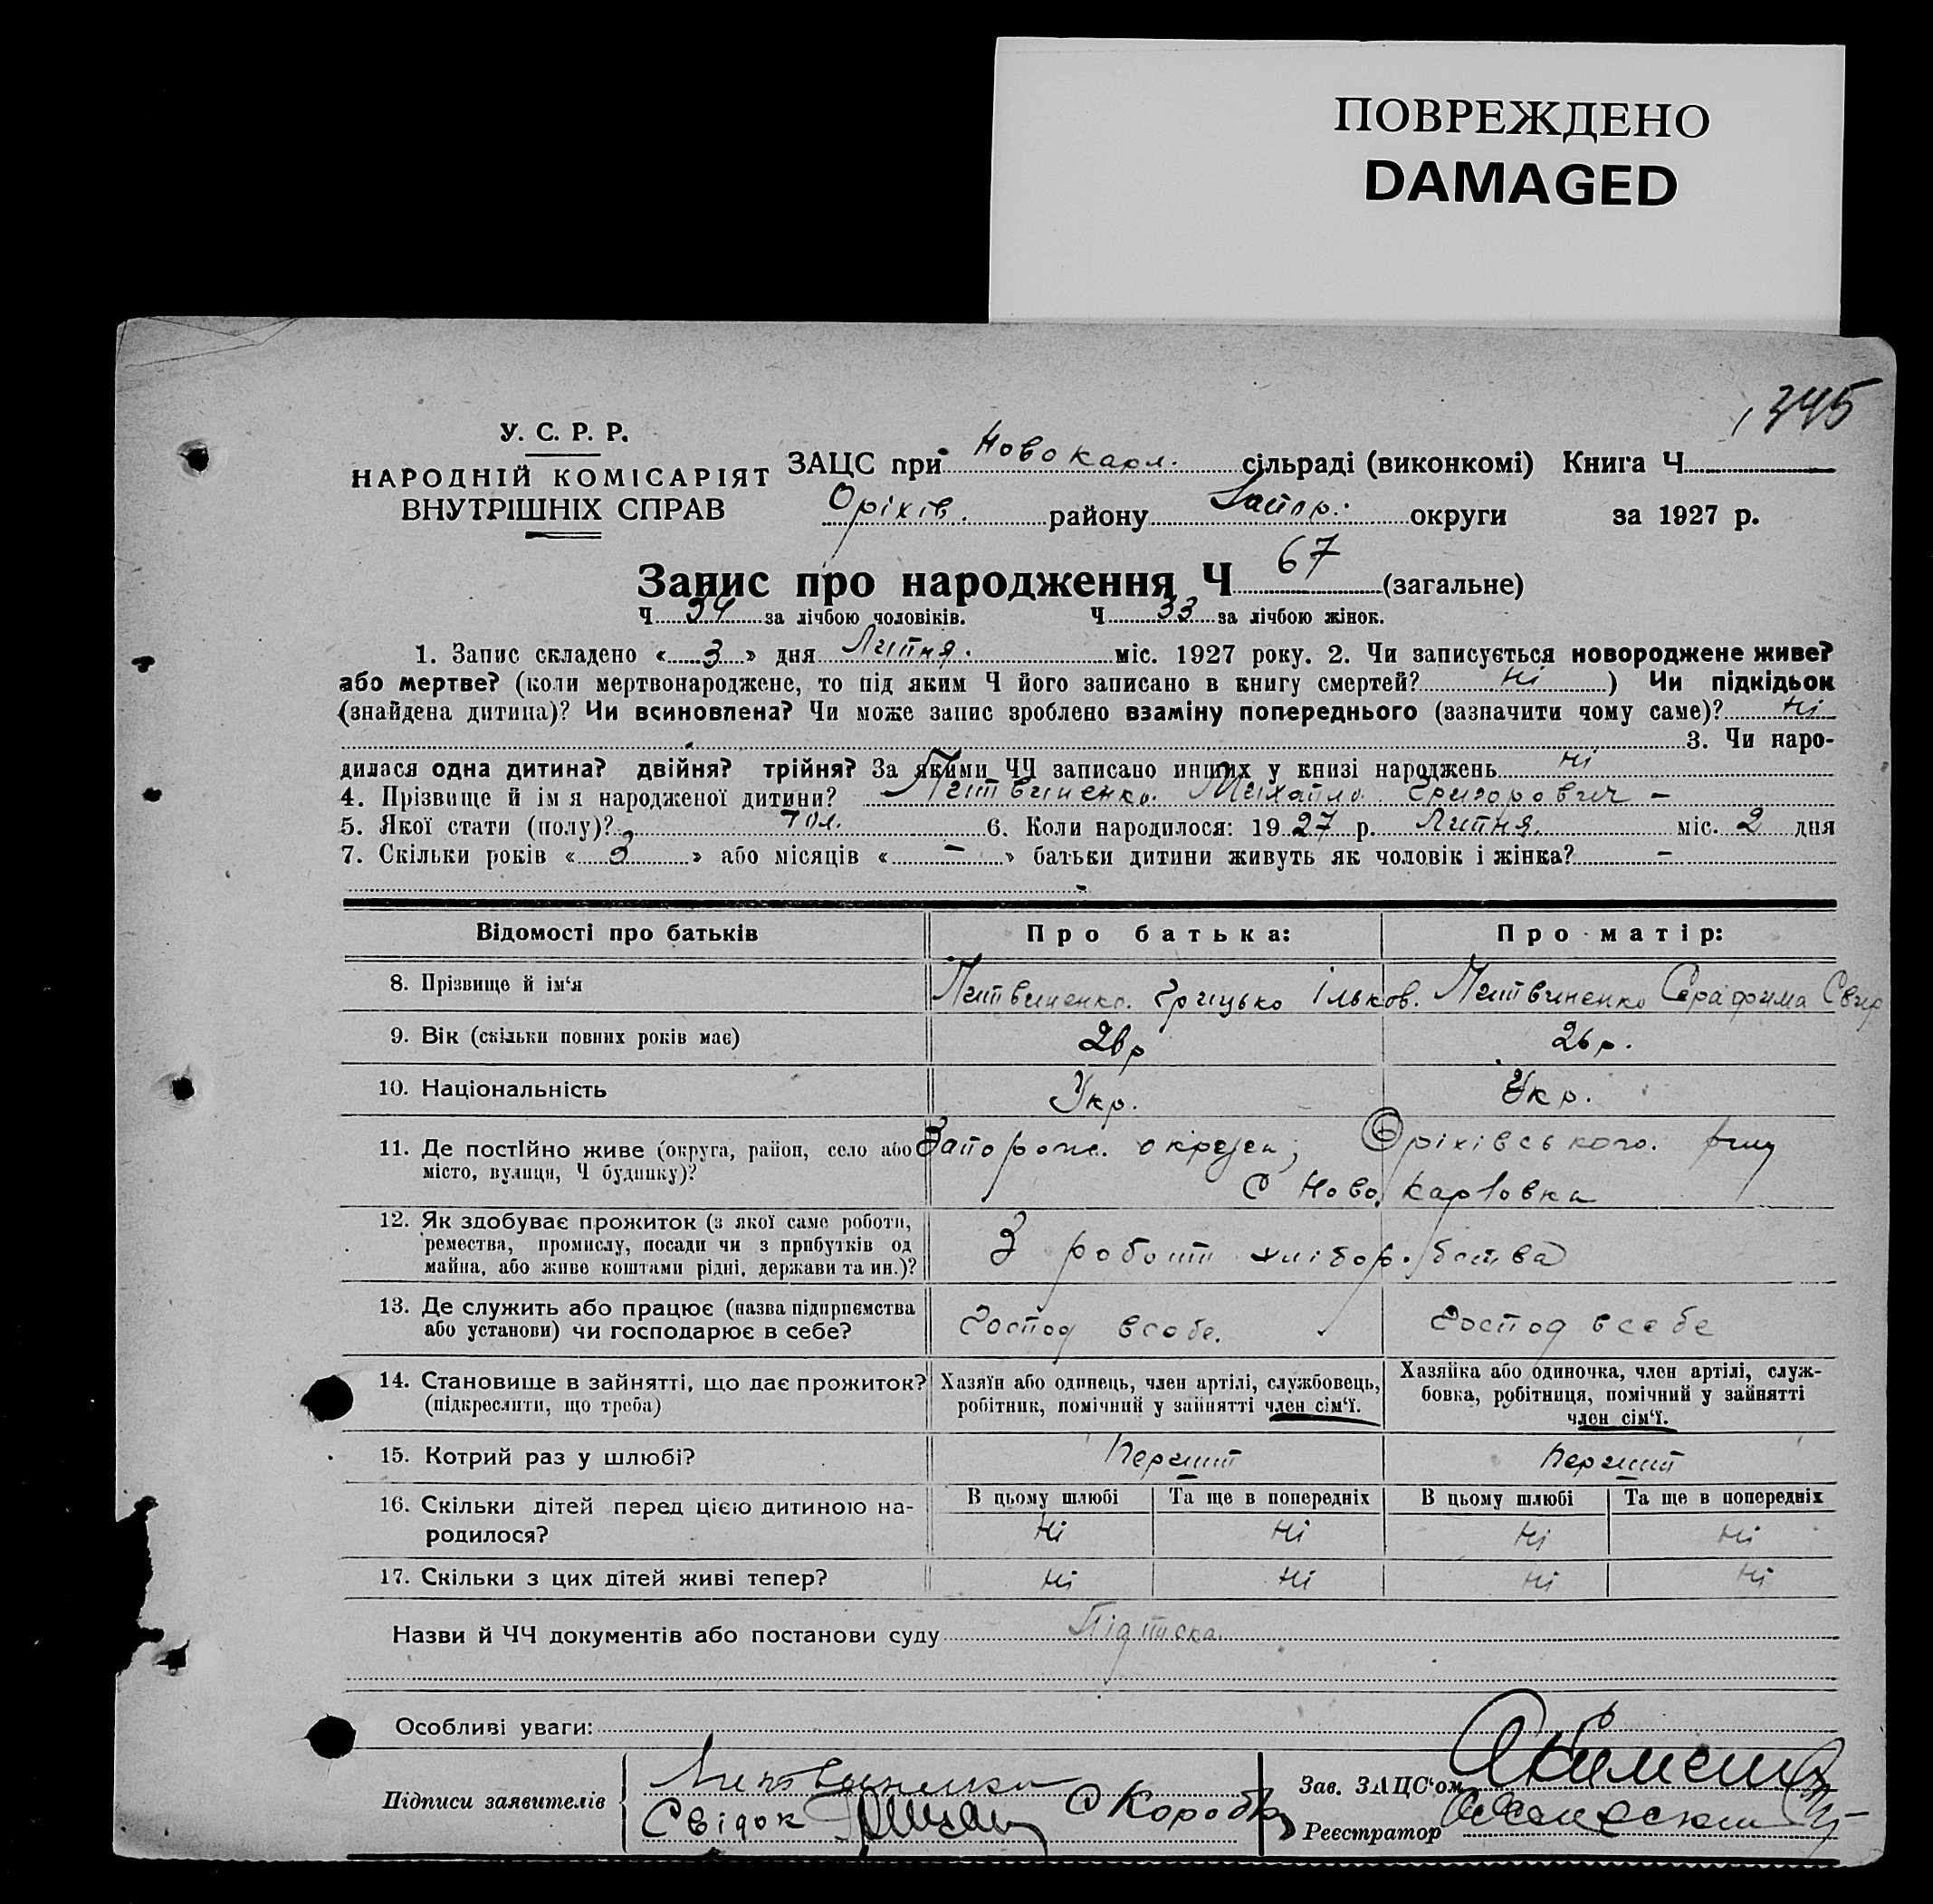 ПОВРЕЖДЕНО
DAMAGED
345
У. С. Р. Р.
НАРОДНІЙ КОМІСАРІЯТ
ВНУТРІШНІХ СПРАВ
ЗАЦС при Новокарл. сільраді (виконкомі) Книга Ч
Оріхів. району Запор. округи за 1927 р.
Запис про народження Ч 67 (загальне)
Ч 34 за лічбою чоловіків. Ч 33 за лічбою жінок.
1. Запис складено «3» дня Липня. міс. 1927 року. 2. Чи записується новороджене живе?
або мертве? (коли мертвонароджене, то під яким Ч його записано в книгу смертей? Ні) Чи підкідьок
(знайдена дитина)? Чи всиновлена? Чи може запис зроблено взаміну попереднього (зазначити чому саме)? Ні
3. Чи наро-
дилася одна дитина? двійня? трійня? За якими ЧЧ записано инших у книзі народжень Ні
4. Прізвище й ім я народженої дитини? Литвиненко. Михайло. Григорович –
5. Якої стати (полу)? чол. 6. Коли народилося: 1927 р. Липня. міс. 2 дня
7. Скільки років «3» або місяців «–» батьки дитини живуть як чоловік і жінка? –
Відомості про батьків
Про батька:
Про матір:
8. Прізвище й ім‘я
Литвиненко. Грицько Ільков.
Литвиненко Серафима Свир
9. Вік (скільки повних років має)
26р
26р.
10. Національність
Укр.
Укр.
11. Де постійно живе (округа, район, село або
місто, вулиця, Ч будинку)?
Запорож. округи; Оріхівського.
С Ново Карловка
12. Як здобуває прожиток (з якої саме роботи,
ремества, промислу, посади чи з прибутків од
майна, або живе коштами рідні, держави та ин.)?
З роботи хлібор.бства
13. Де служить або працює (назва підприємства
або установи) чи господарює в себе?
Господ всебе.
Господ всебе
14. Становище в зайнятті, що дає прожиток?
(підкреслити, що треба)
Хазяїн або одинець, член артілі, службовець,
робітник, помічний у зайнятті член сім‘ї.
Хазяйка або одиночка, член артілі, служ-
бовка, робітниця, помічний у зайнятті
член сім‘ї.
15. Котрий раз у шлюбі?
Перший
Перший
16. Скільки дітей перед цією дитиною на-
родилося?
В цьому шлюбі
Та ще в попередніх
В цьому шлюбі
Та ще в попередніх
Ні
Ні
Ні
Ні
17. Скільки з цих дітей живі тепер?
Ні
Ні
Ні
Ні
Назви й ЧЧ документів або постанови суду Підписка.
Особливі уваги:
Підписи заявителів
Литвиненко
Свідок
Зав. ЗАЦС‘ом
Реєстратор